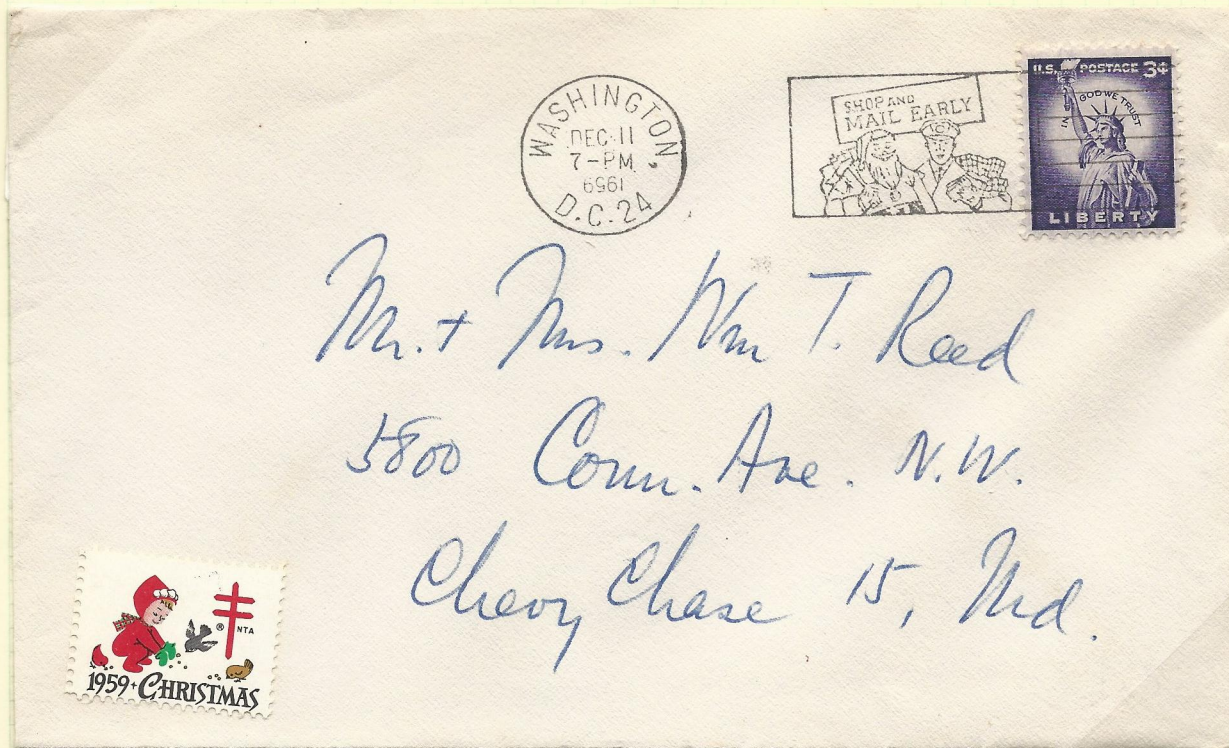 WASHINGTON,
DEC 11
7-PM
1959
D.C. 24
SHOP AND
MAIL EARLY
U.S. POSTAGE 3¢
IN GOD WE TRUST
LIBERTY
Mr. + Mrs. Wm T. Reed
5800 Conn. Ave. N.W.
Chevy Chase 15, Md.
® NTA
1959 · CHRISTMAS